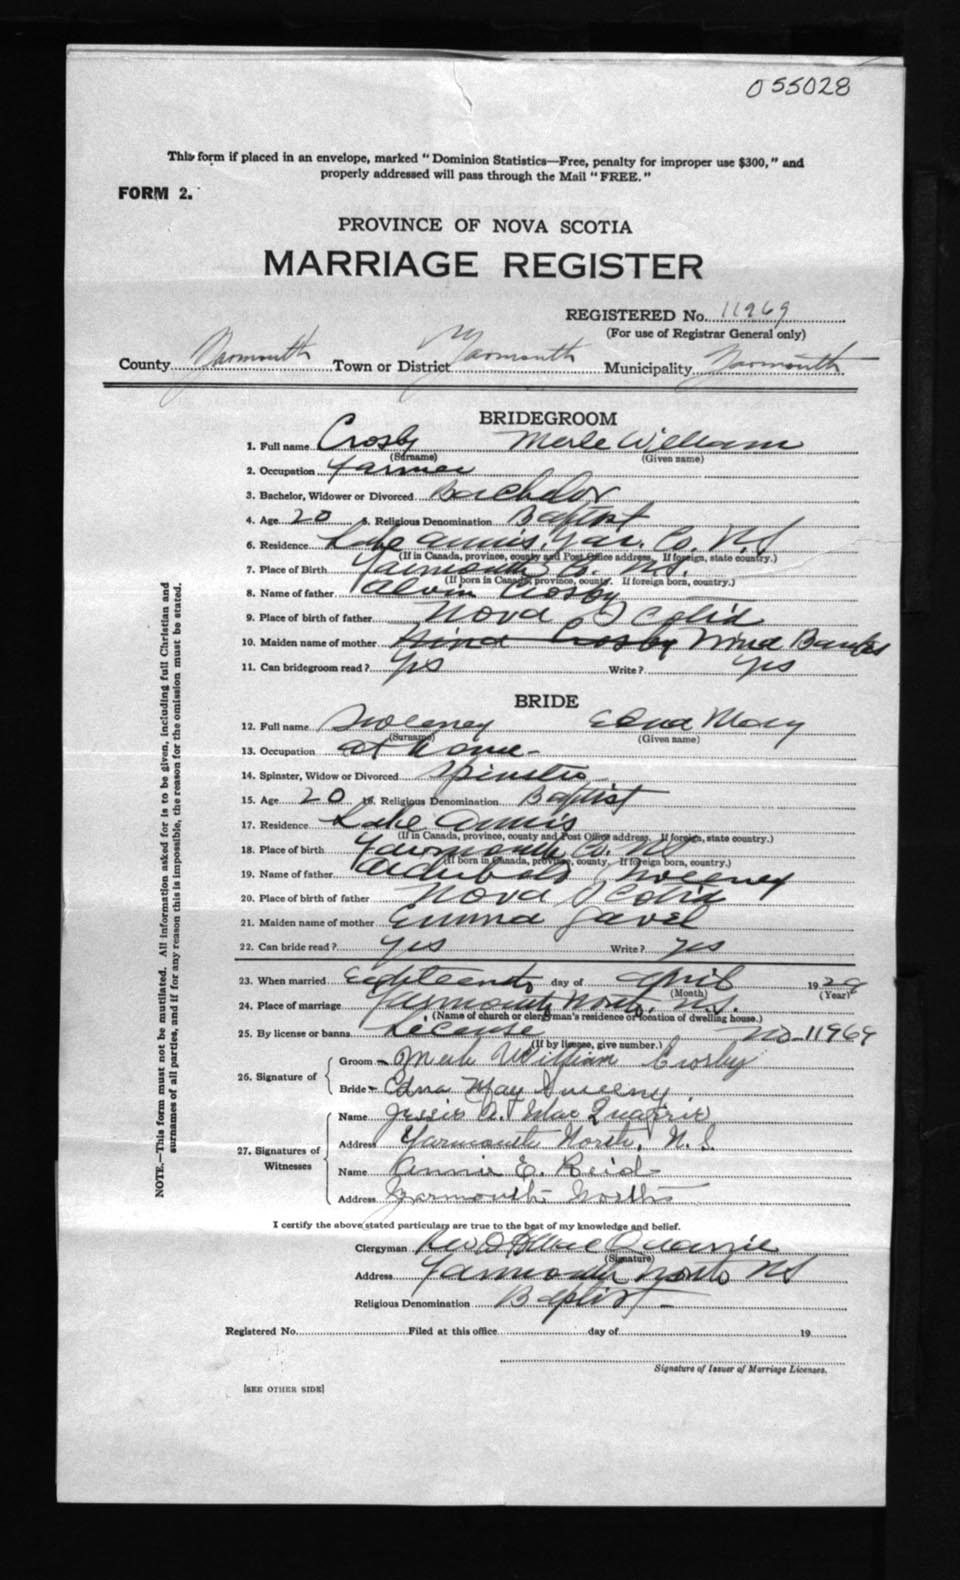 055028
This form if placed in an envelope, marked "Dominion Statistics—Free, penalty for improper use $300," and
properly addressed will pass through the Mail "FREE."
FORM 2.
PROVINCE OF NOVA SCOTIA
MARRIAGE REGISTER
REGISTERED No. 11969
(For use of Registrar General only)
County Yarmouth Town or District Yarmouth Municipality Yarmouth
BRIDEGROOM
1. Full name Crosby Merle William
(Surname) (Given name)
2. Occupation Farmer
3. Bachelor, Widower or Divorced Bachelor
4. Age 20 5. Religious Denomination Baptist
6. Residence Lake Annis, Yar. Co. N.S
(If in Canada, province, county and Post Office address. If foreign, state country.)
7. Place of Birth Yarmouth Co. N.S.
(If born in Canada, province, county. If foreign born, country.)
8. Name of father Alvin Crosby
9. Place of birth of father Nova Scotia
10. Maiden name of mother Nina Crosby Nina Banks
11. Can bridegroom read? Yes Write? Yes
BRIDE
12. Full name Sweeney Edna May
(Surname) (Given name)
13. Occupation at home
14. Spinster, Widow or Divorced Spinster
15. Age 20 16. Religious Denomination Baptist
17. Residence Lake Annis
(If in Canada, province, county and Post Office address. If foreign, state country.)
18. Place of birth Yarmouth Co. NS
(If born in Canada, province, county. If foreign born, country.)
19. Name of father Archibald Sweeney
20. Place of birth of father Nova Scotia
21. Maiden name of mother Emma Gavel
22. Can bride read? Yes Write? Yes
23. When married Eighteenth day of April 1928
(Month) (Year)
24. Place of marriage Yarmouth North, N.S.
(Name of church or clergyman's residence or location of dwelling house.)
25. By license or banns License No. 11969
(If by license, give number.)
26. Signature of
Groom Merle William Crosby
Bride Edna May Sweeny
27. Signatures of Witnesses
Name Jessie A. MacQuarrie
Address Yarmouth North, N.S.
Name Annie E. Reid
Address Yarmouth North
I certify the above stated particulars are true to the best of my knowledge and belief.
Clergyman Rev D MacQuarrie
(Signature)
Address Yarmouth North NS
Religious Denomination Baptist
Registered No. Filed at this office day of 19
Signature of Issuer of Marriage Licenses.
[SEE OTHER SIDE]
NOTE.—This form must not be mutilated. All information asked for is to be given, including full Christian and
surnames of all parties, and if for any reason this is impossible, the reason for the omission must be stated.